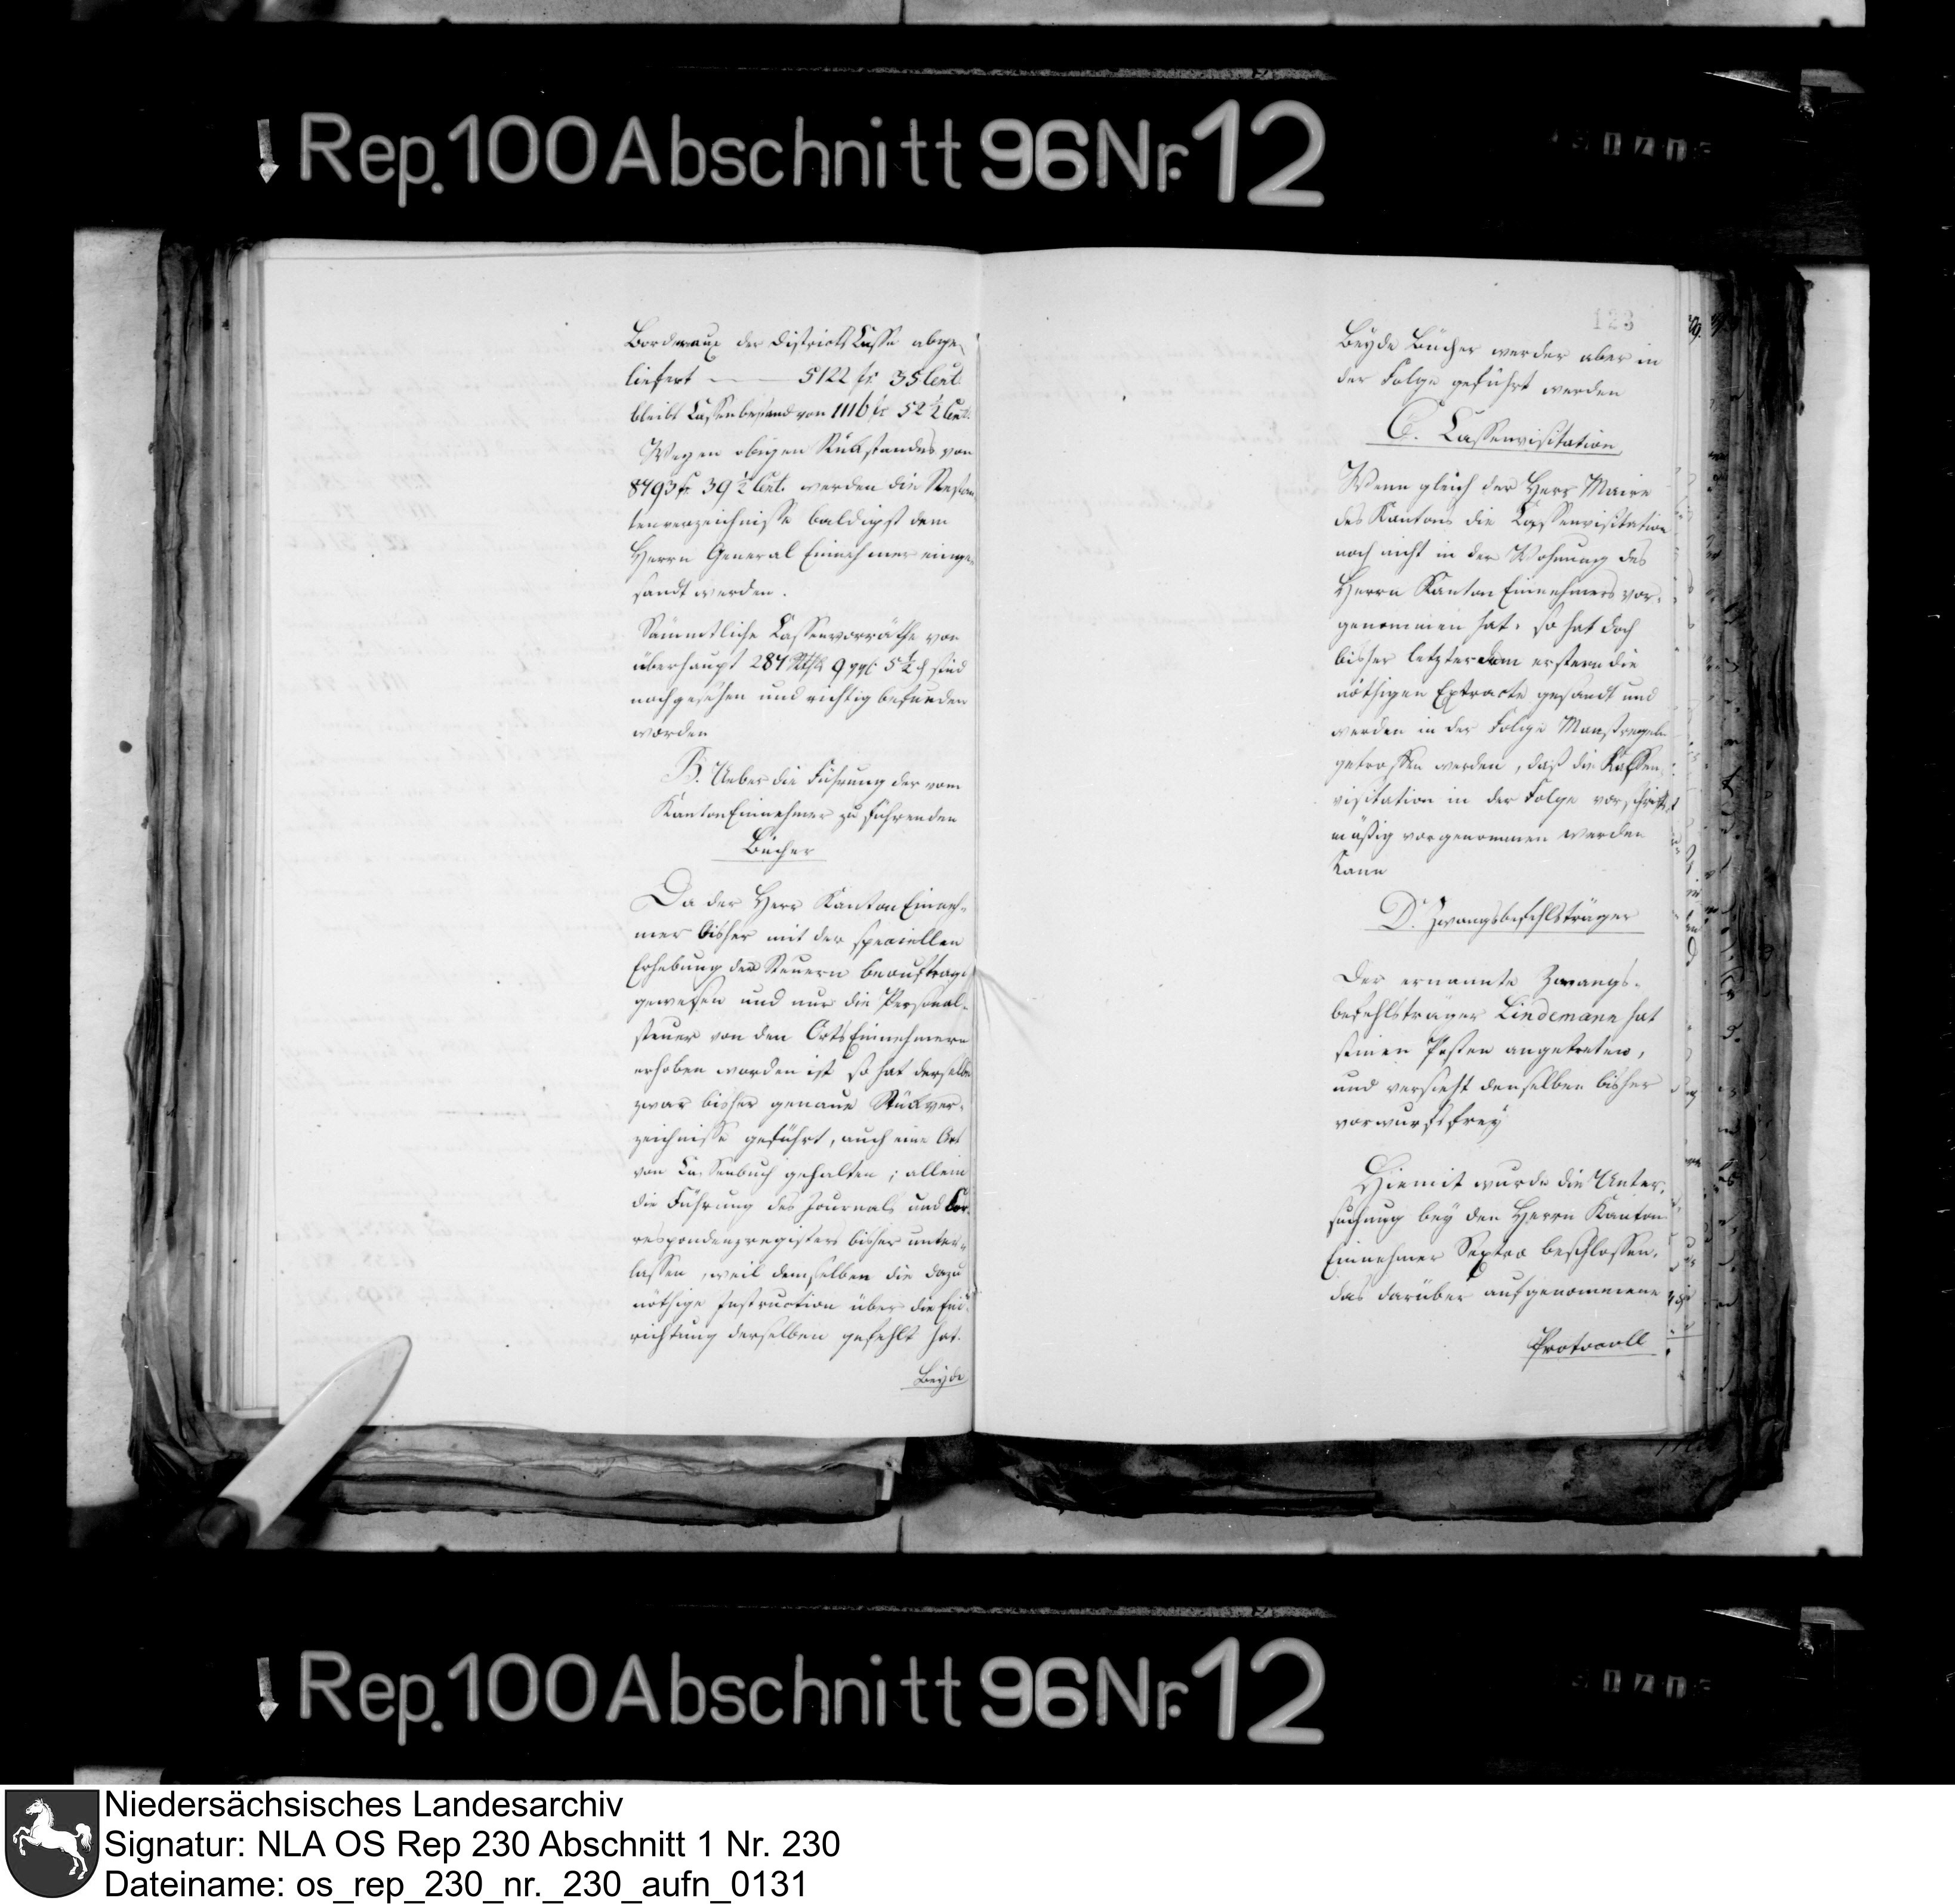 Rep. 100 Abschnitt 96 Nr. 12
Bordereaux der Districts Casse abge-
liefert — 5122 fr 35 Cent.
bleibt Cassenbestand von 1116 fr 52 ½ Cent.
Wegen obigen Rükstandes von
8793 fr 39 ½ Cent. werden die Restan
tenverzeichnisse baldigst dem
Herrn General Einnehmer einge-
sandt werden.
Sämmtliche Cassenvorräthe von
überhaupt 287 Rthlr 9 ggl. 5 ½ d sind
nachgesehen und richtig befunden
worden
B. Ueber die Führung der vom
Kanton Einnehmer zu führenden
Bücher
Da der Herr Kanton Einneh-
mer bisher mit der speciellen
Erhebung der Steuern beauftragt
gewesen und nur die Personal-
steuer von den Orts Einnehmern
erhoben worden ist so hat derselbe
zwar bisher genaue Stükver-
zeichnisse geführt, auch eine Art
von Cassenbuch gehalten; allein
die Führung des Journals und Cor-
respondenzregisters bisher unter-
lassen, weil demselben die dazu
nöthige Instruction über die Ein-
richtung derselben gefehlt hat.
Beyde
123
Beyde Bücher werden aber in
der Folge geführt werden
C. Cassenvisitation
Wenn gleich der Herr Maire
des Kantons die Cassenvisitation
noch nicht in der Wohnung des
Herrn Kanton Einnehmers vor-
genommen hat, so hat doch
bisher letzter dem erstern die
nöthigen Extracte gesandt und
werden in der Folge Maasregeln
getroffen werden, daß die Kassen-
visitation in der Folge vorschrifts
mäßig vorgenommen werden
kann
D. Zwangsbefehlsträger
Der ernannte Zwangs-
befehlsträger Lindemann hat
seinen Posten angetreten,
und versieht denselben bisher
vorwurfsfrey
Hiemit wurde die Unter-
suchung bey den Herrn Kanton
Einnehmer Sextro beschlossen,
das darüber aufgenommene
Protocoll
Rep. 100 Abschnitt 96 Nr. 12
Niedersächsisches Landesarchiv
Signatur: NLA OS Rep 230 Abschnitt 1 Nr. 230
Dateiname: os_rep_230_nr._230_aufn_0131